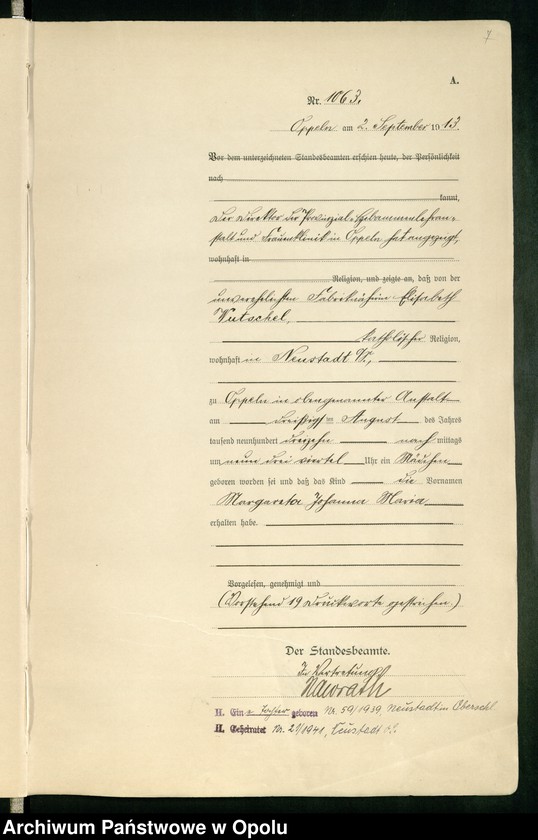 7
A.
Nr. 1063.
Oppeln am 2. September 1913.
Vor dem unterzeichneten Standesbeamten erschien heute, der Persönlichkeit
nach
kannt,
Der Direktor der Provinzial-Hebammenlehran-
stalt und Frauenklinik in Oppeln hat angezeigt,
wohnhaft in
Religion, und zeigte an, daß von der
unverehelichten Fabriknäherin Elisabeth
Wutschel,
katholischer Religion,
wohnhaft in Neustadt O/S.,
zu Oppeln in obengenannter Anstalt
am dreißigsten August des Jahres
tausend neunhundert dreizehn nach mittags
um neun drei viertel Uhr ein Mädchen
geboren worden sei und daß das Kind die Vornamen
Margareta Johanna Maria
erhalten habe.
Vorgelesen, genehmigt und
(Vorstehend 19 Druckworte gestrichen.)
Der Standesbeamte.
In Vertretung
Nawrath
H. Eine Tochter geboren Nr. 59/1939, Neustadt in Oberschl.
H. Geheiratet Nr. 21/1941, Neustadt O/S.
Archiwum Państwowe w Opolu